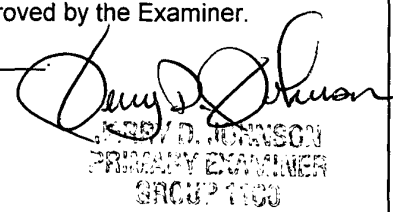 roved by the Examiner.
Jerry D. Johnson
JERRY D. JOHNSON
PRIMARY EXAMINER
GROUP 1100